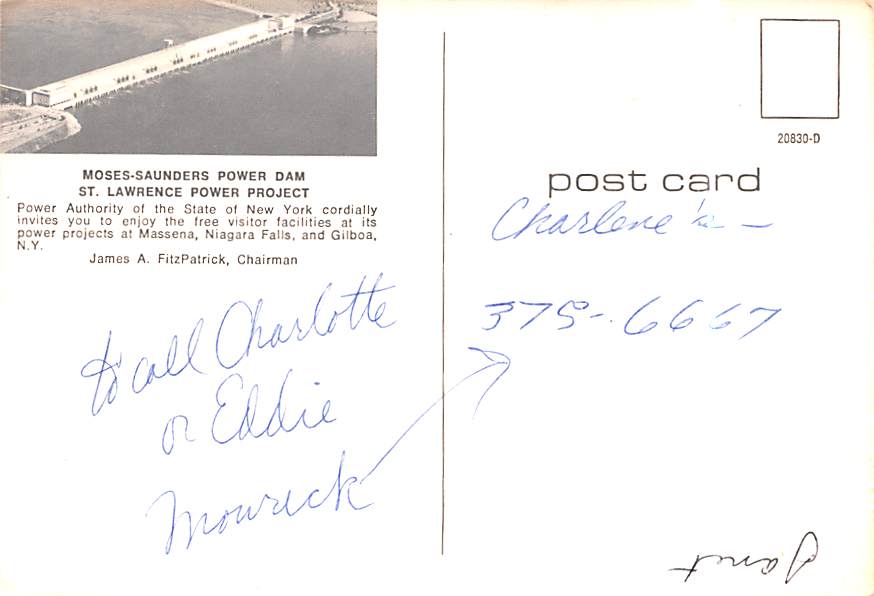 MOSES-SAUNDERS POWER DAM
ST. LAWRENCE POWER PROJECT
Power Authority of the State of New York cordially
invites you to enjoy the free visitor facilities at its
power projects at Massena, Niagara Falls, and Gilboa,
N.Y.
James A. FitzPatrick, Chairman
to call Charlotte
or Eddie
Mowreck
20830-D
post card
Charlene's —
375-6667
Janet